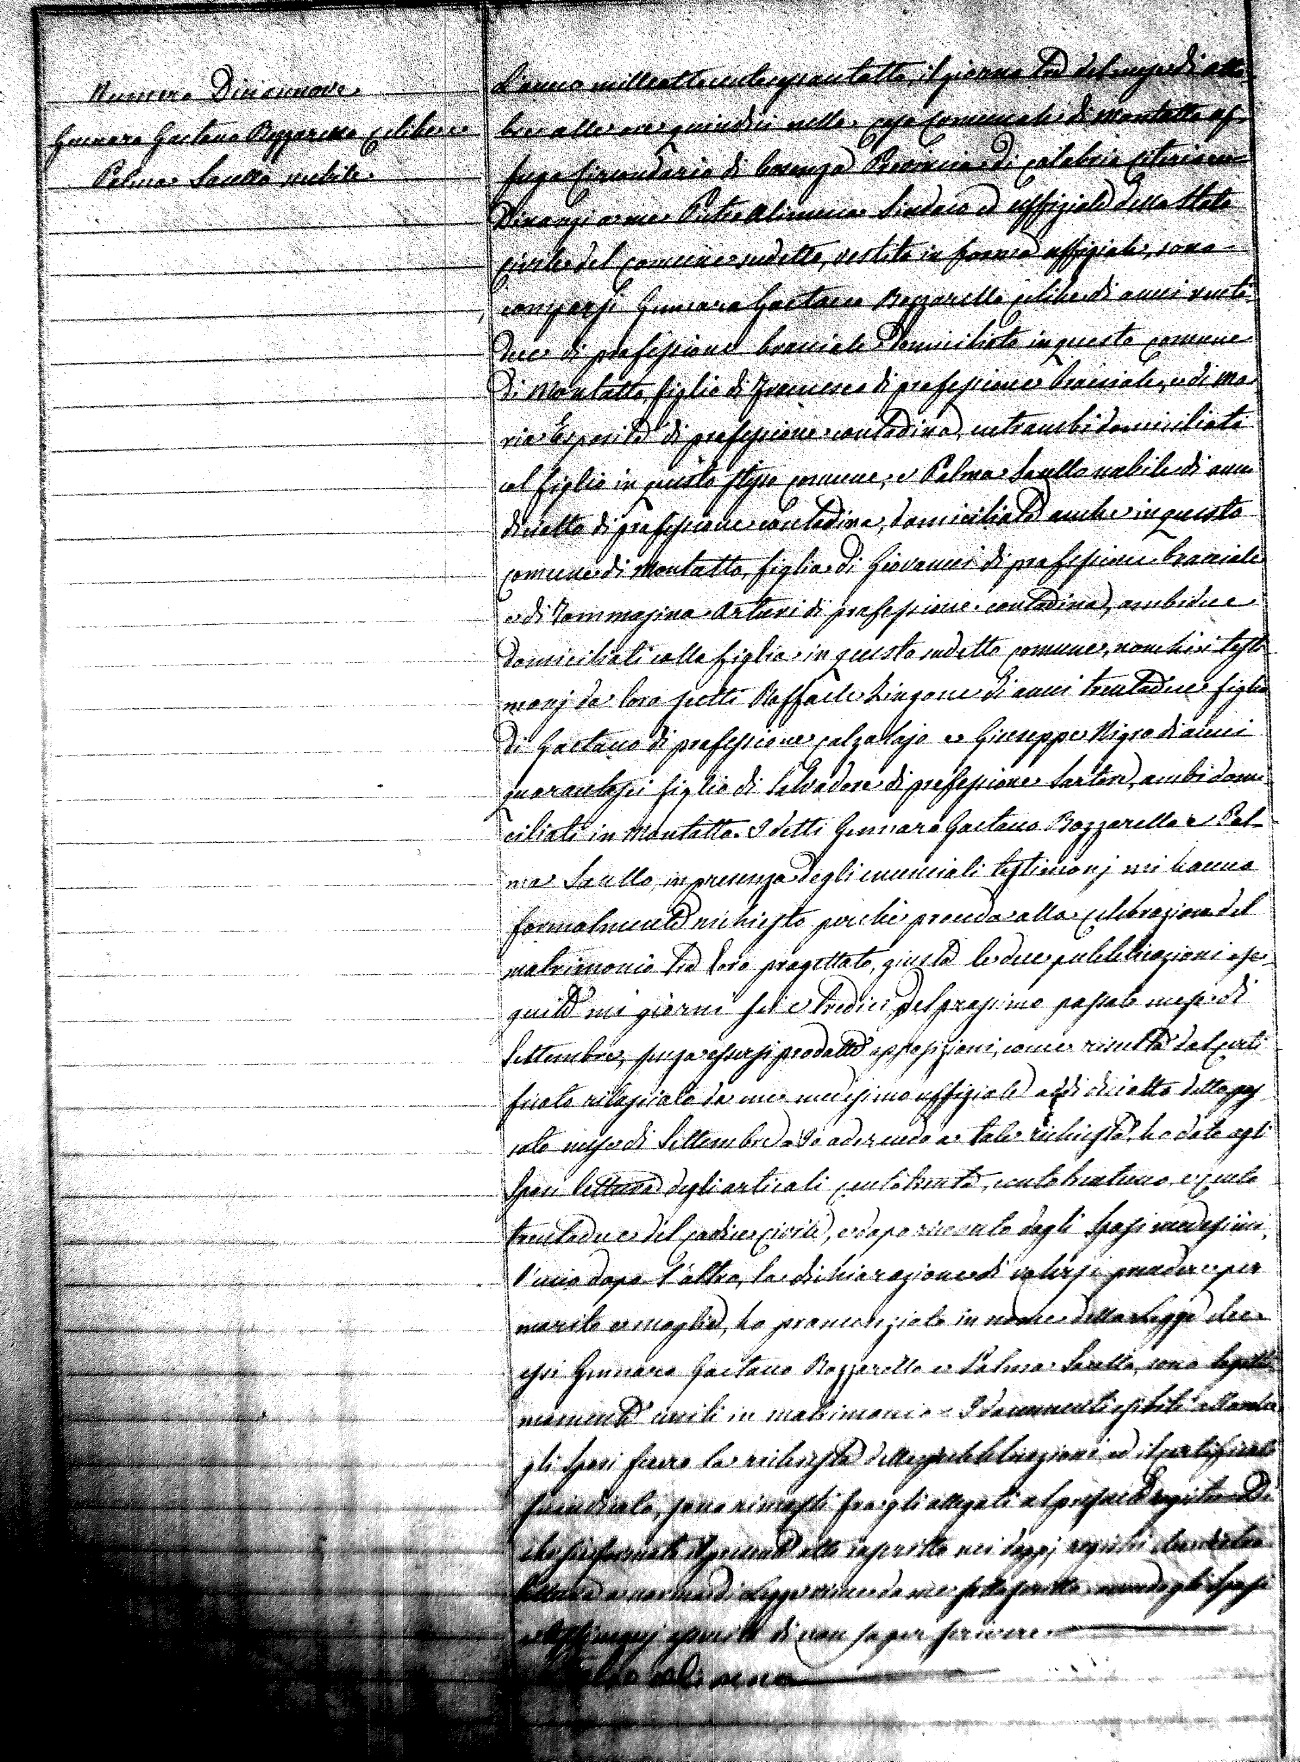 Numero Diciannove
Gennaro Gaetano Bozzarello celibe e
Palma Sarullo nubile
L'anno milleottocentoquarantotto, il giorno tre del mese di otto
bre alle ore quindici nella casa Comunale di Montalto Uf-
fugo Circondario di Cosenza Provincia di Calabria Citeriore
Dinanzi a me Pietro Alimena Sindaco ed uffiziale dello Stato
civile del comune sudetto, vestito in forma uffiziale, sono
comparsi Gennaro Gaetano Bozzarello celibe di anni venti
due di professione bracciale domiciliato in questo comune
di Montalto, figlio di Francesco di professione bracciale, e di Ma
ria Esposito di professione contadina, entrambi domiciliati
col figlio in questo stesso comune, e Palma Sarullo nubile di anni
diciotto di professione contadina, domiciliata anche in questo
comune di Montalto, figlia di Giovanni di professione bracciale
e di Tommasina Arturi di professione contadina, ambidue
domiciliati colla figlia in questo sudetto comune, nonchè i testi
monj da loro scelti Raffaele Zingone di anni trentadue figlio
di Gaetano di professione calzolajo e Giuseppe Nigro di anni
quarantasei figlio di Salvadore di professione Sartore, ambi domi
ciliati in Montalto. I detti Gennaro Gaetano Bozzarello e Pal-
ma Sarullo, in presenza degli enunciati testimonj mi hanno
formalmente richiesto perchè proceda alla celebrazione del
matrimonio tra loro progettato, giusta le due pubblicazioni ese-
guite nei giorni sei e tredici del prossimo passato mese di
Settembre, senza essersi prodotte opposizioni, come risulta dal certi
ficato rilasciato da me medesimo uffiziale addì diciotto detto pas
sato mese di Settembre. Io aderendo a tale richiesta, ho dato agli
sposi lettura degli articoli centotrenta, centotrentuno, e cento
trentadue del codice civile, e dopo ricevuto dagli sposi medesimi,
l'uno dopo l'altro, la dichiarazione di volersi prendere per
marito e moglie, ho pronunziato in nome della Legge che
essi Gennaro Gaetano Bozzarello e Palma Sarullo, sono legitti
mamente uniti in matrimonio - I documenti esibiti allorchè
gli sposi fecero la richiesta delle pubblicazioni ed il certificato
suindicato, sono rimasti fra gli allegati al presente registro. Di
che si è formato il presente atto inscritto nei doppj registri
lettura a norma di Legge viene da me sottoscritto avendo gli sposi
e testimonj asserito di non saper scrivere.
Pietro Alimena